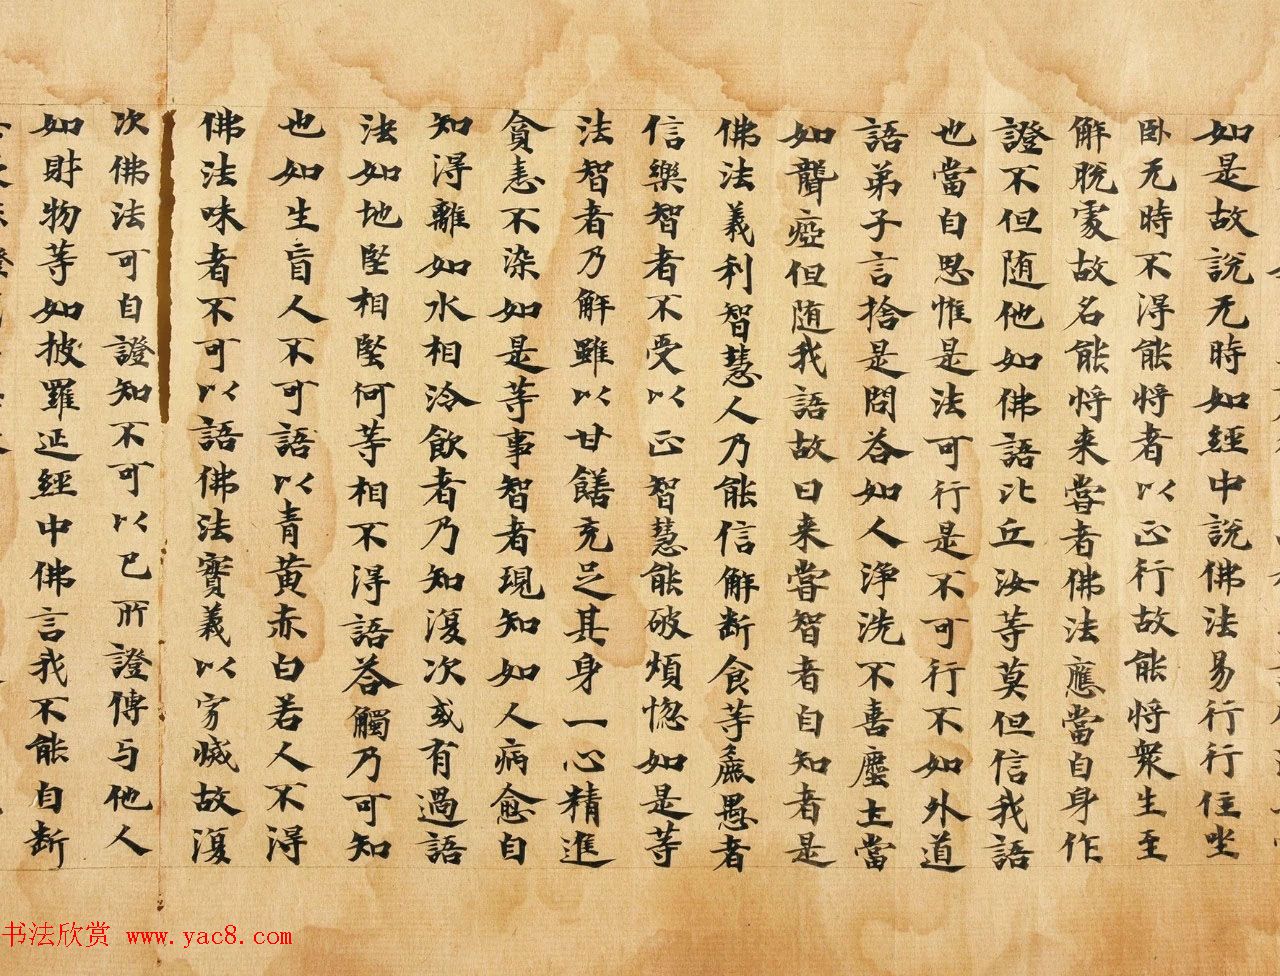 如是故説无時如經中説佛法易行行住坐
卧无時不得能将者以正行故能将衆生至
解脱處故名能将来嘗者佛法應當自身作
證不但随他如佛語比丘汝等莫但信我語
也當自思惟是法可行是不可行不如外道
語弟子言捨是問荅如人浄洗不喜塵土當
如聾瘂但随我語故曰来嘗智者自知者是
佛法義利智慧人乃能信解断食等麁愚者
信樂智者不受以正智慧能破煩惚如是等
法智者乃解雖以甘饍充足其身一心精進
貪恚不染如是等事智者現知如人病愈自
知得離如水相冷飲者乃知復次或有過語
法如地堅相堅何等相不得語荅觸乃可知
也如生盲人不可語以青黄赤白若人不得
佛法味者不可以語佛法實義以㝍烕故復
次佛法可自證知不可以已所證傳与他人
如財物等如披羅延經中佛言我不能自断
书法欣赏 www.yac8.com